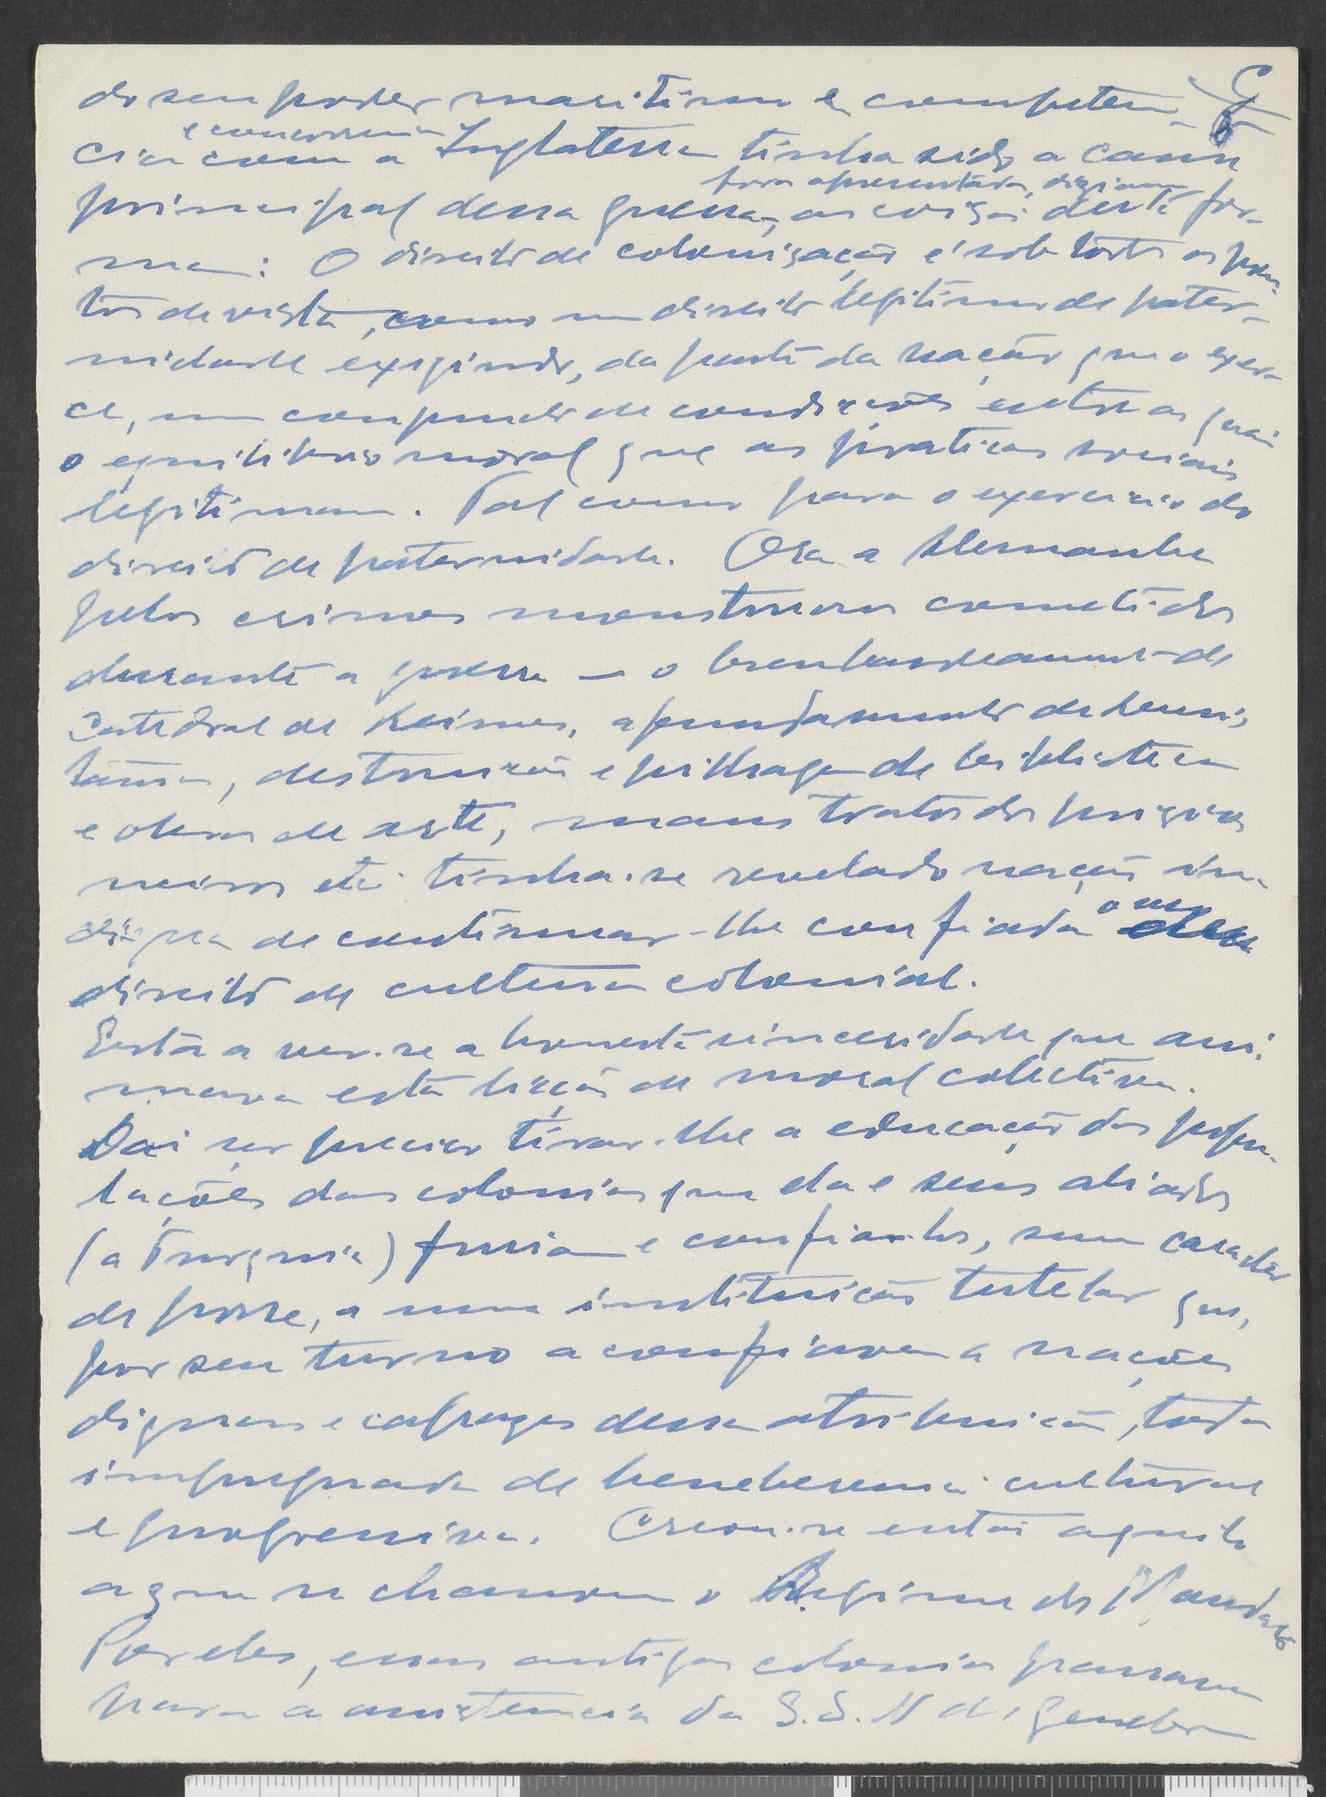 do seu poder maritimo e competen-
cia e concorrencia com a Inglaterra tinha sido a causa
principal dessa guerra, as coisas desta for-
fora apresentada, diziam
ma: O direito de colonização é sob todos os pon-
tos de vista, como um direito legitimo de pater-
nidade exigindo, da parte da nação que o exer-
ce, um conjunto de condições entre as quais
o equilibrio moral que as praticas sociais
legitimam. Tal como para o exercicio do
direito de paternidade. Ora a Alemanha
pelos crimes monstruosos cometidos
durante a guerra — o bombardeamento de
Catedral de Reims, afundamento do Lusi-
tania, destruição e pilhagem de biblioteca
e obras de arte, maus tratos dos prisio-
neiros etc. tinha-se revelado nação in-
digna de continuar-lhe confiada o seu
direito de cultura colonial.
Está a ver-se a honesta sinceridade que ani-
mava esta lição de moral colectiva.
Dai ser preciso tirar-lhe a educação das popu-
lações das colonias que ela e seus aliados
(a Turquia) fruiam e confia-los, sem caracter
de posse, a uma instituição tutelar que,
por seu turno a confiavam a nações
dignas e capazes dessa atribuição, toda
impregnada de benebemencia cultural
e progressiva. Creou-se então aquilo
a que se chamou o Regime dos Mandatos
Por eles, essas antigas colonias passaram
para a assistencia da S. S. N de Genebra